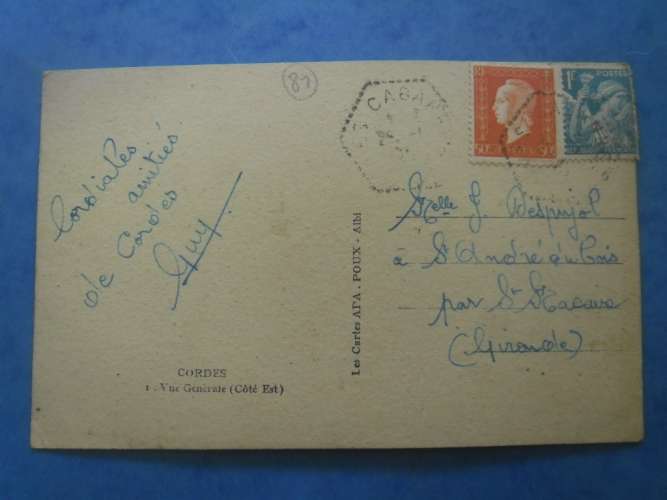 81
CABA
1F
POSTES
Cordiales
amitiés
de Cordes
Guy.
CORDES
1 - Vue Générale (Côté Est)
Les Cartes APA. POUX - Albi
Melle J. Despujol
à St André du bois
par St Macaire
(Gironde)